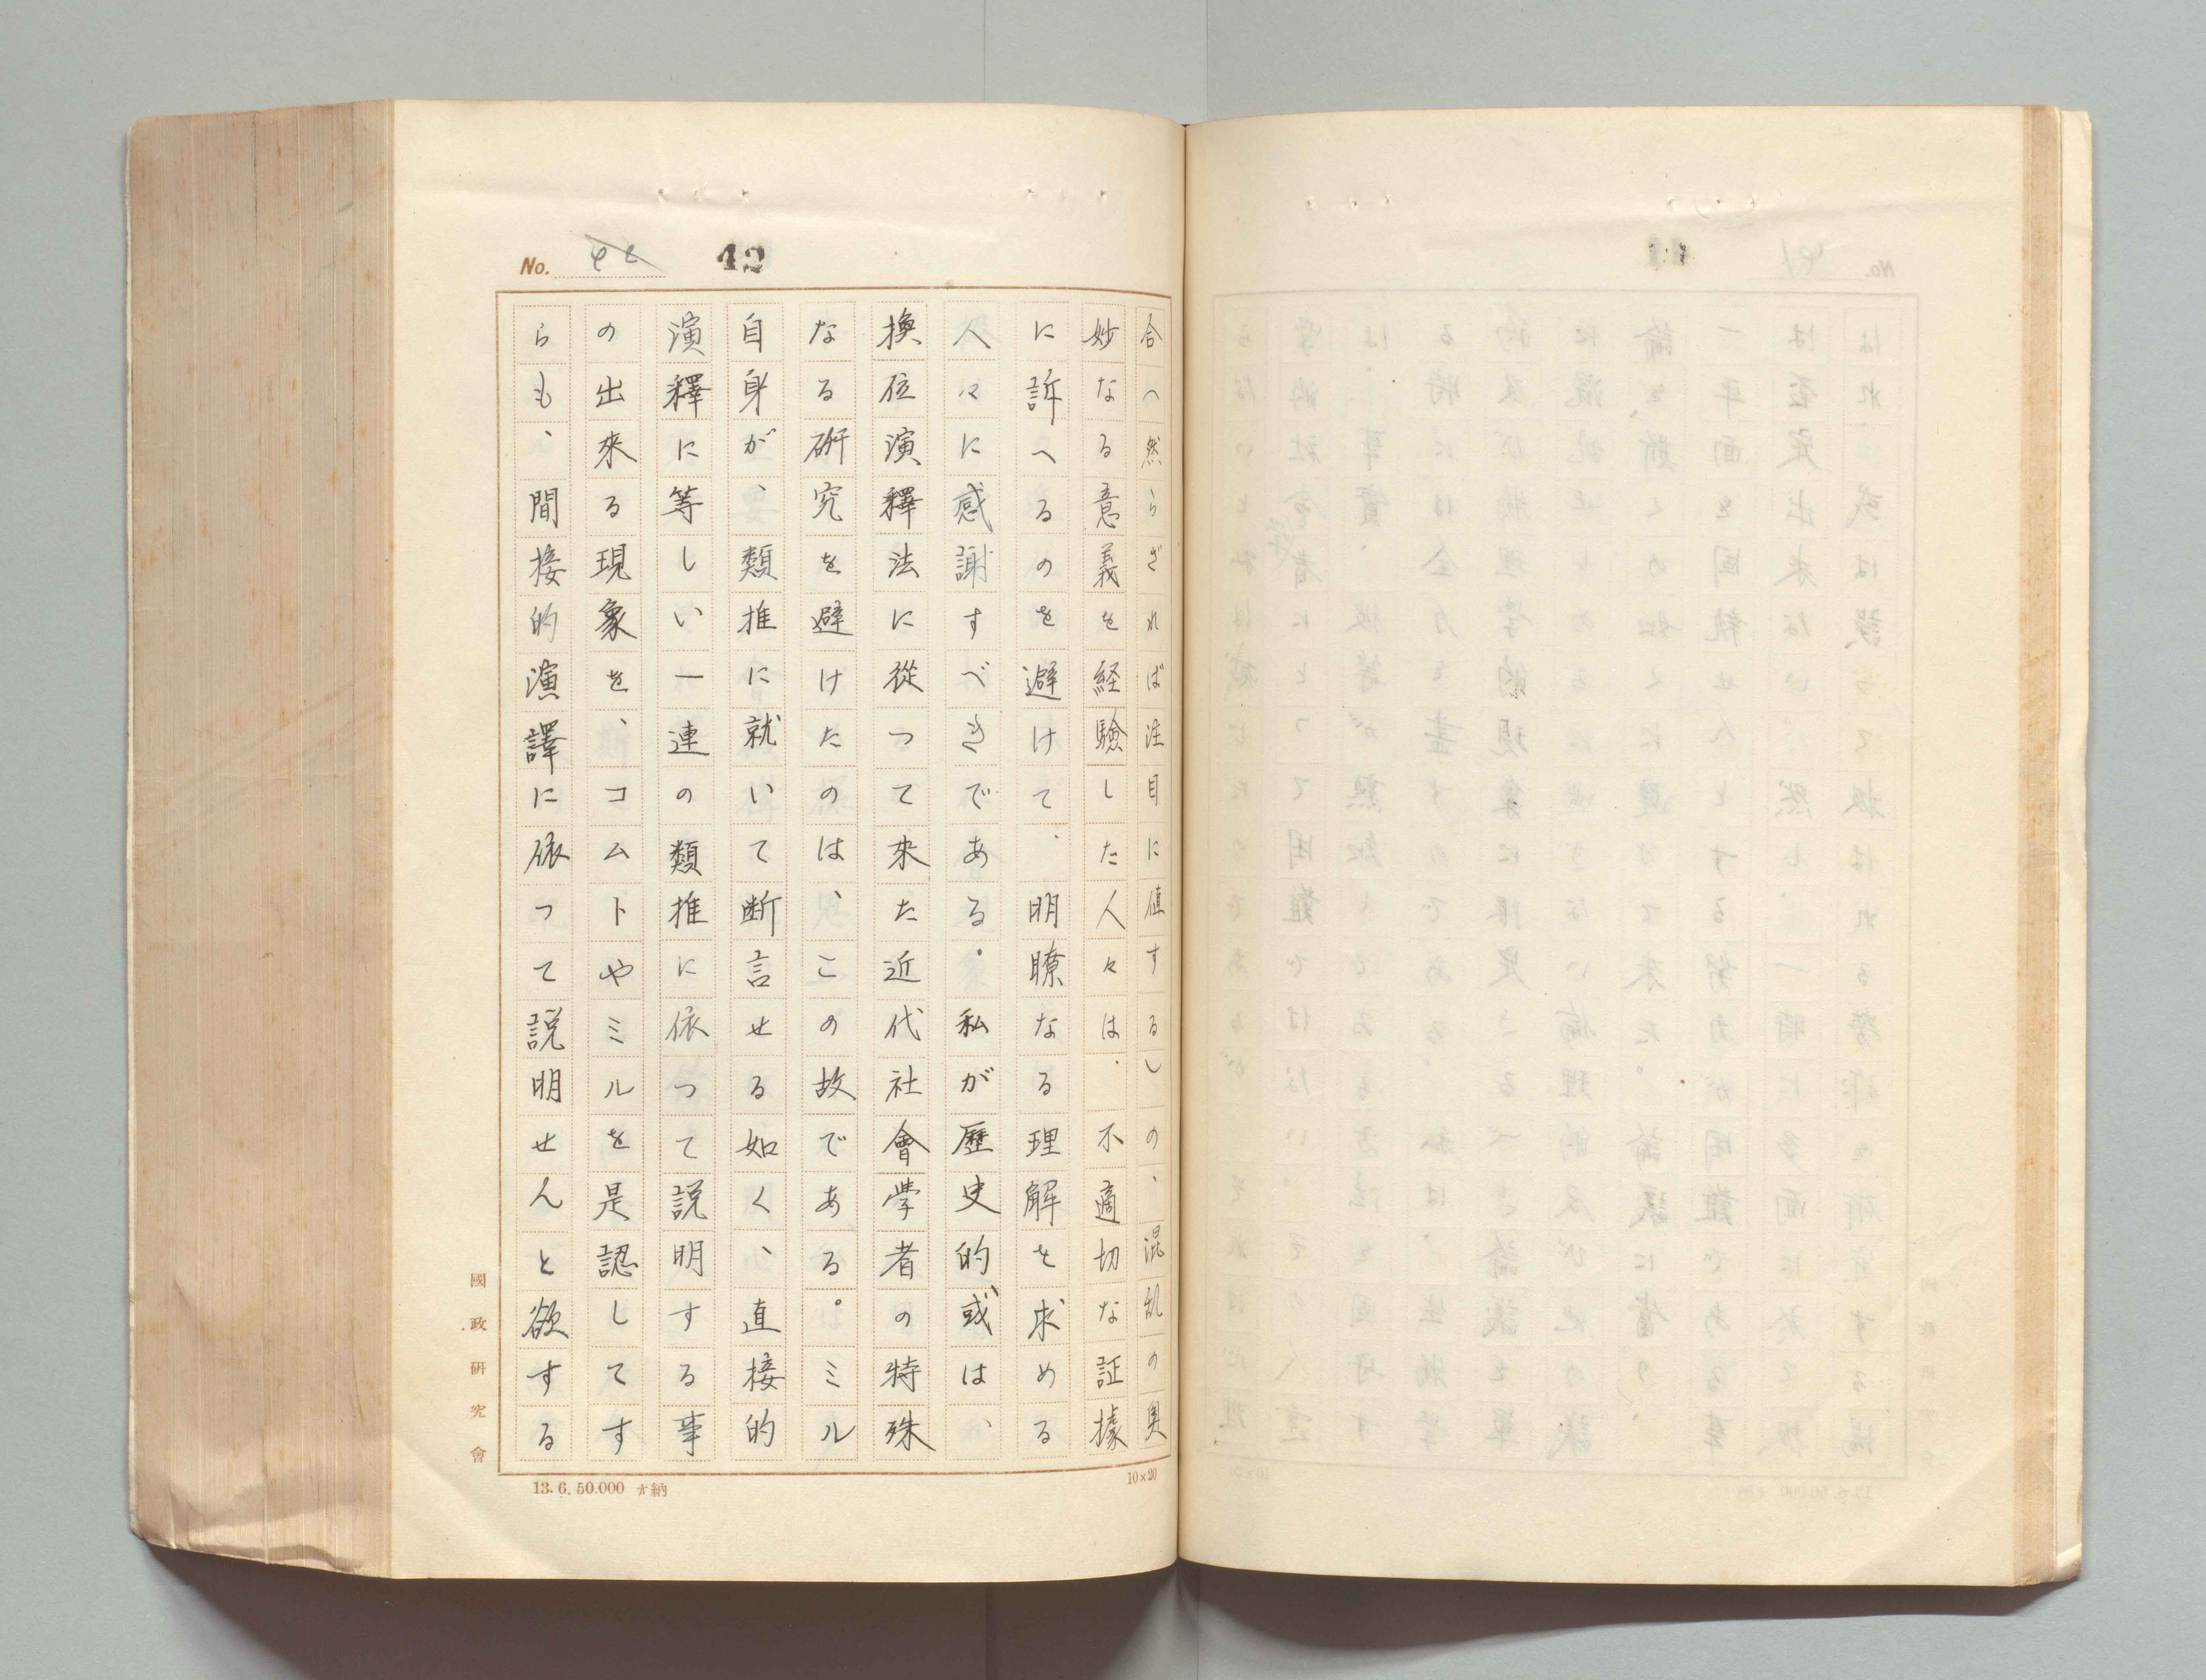 No. 42
42
合(然らざれば注目に値する)の、混乱の奥
妙なる意義を経験した人々は、不適切な証據
に訴へるのを避けて、明瞭なる理解を求める
人々に感謝すべきである。私が歴史的或は、
換位演釋法に從つて來た近代社會學者の特殊
なる研究を避けたのは、この故である。ミル
自身が、類推に就いて断言せる如く、直接的
演釋に等しい一連の類推に依つて説明する事
の出來る現象を、コムトやミルを是認してす
らも、間接的演譯に依つて説明せんと欲する
國政研究會
13.6.50.000 納
10×20